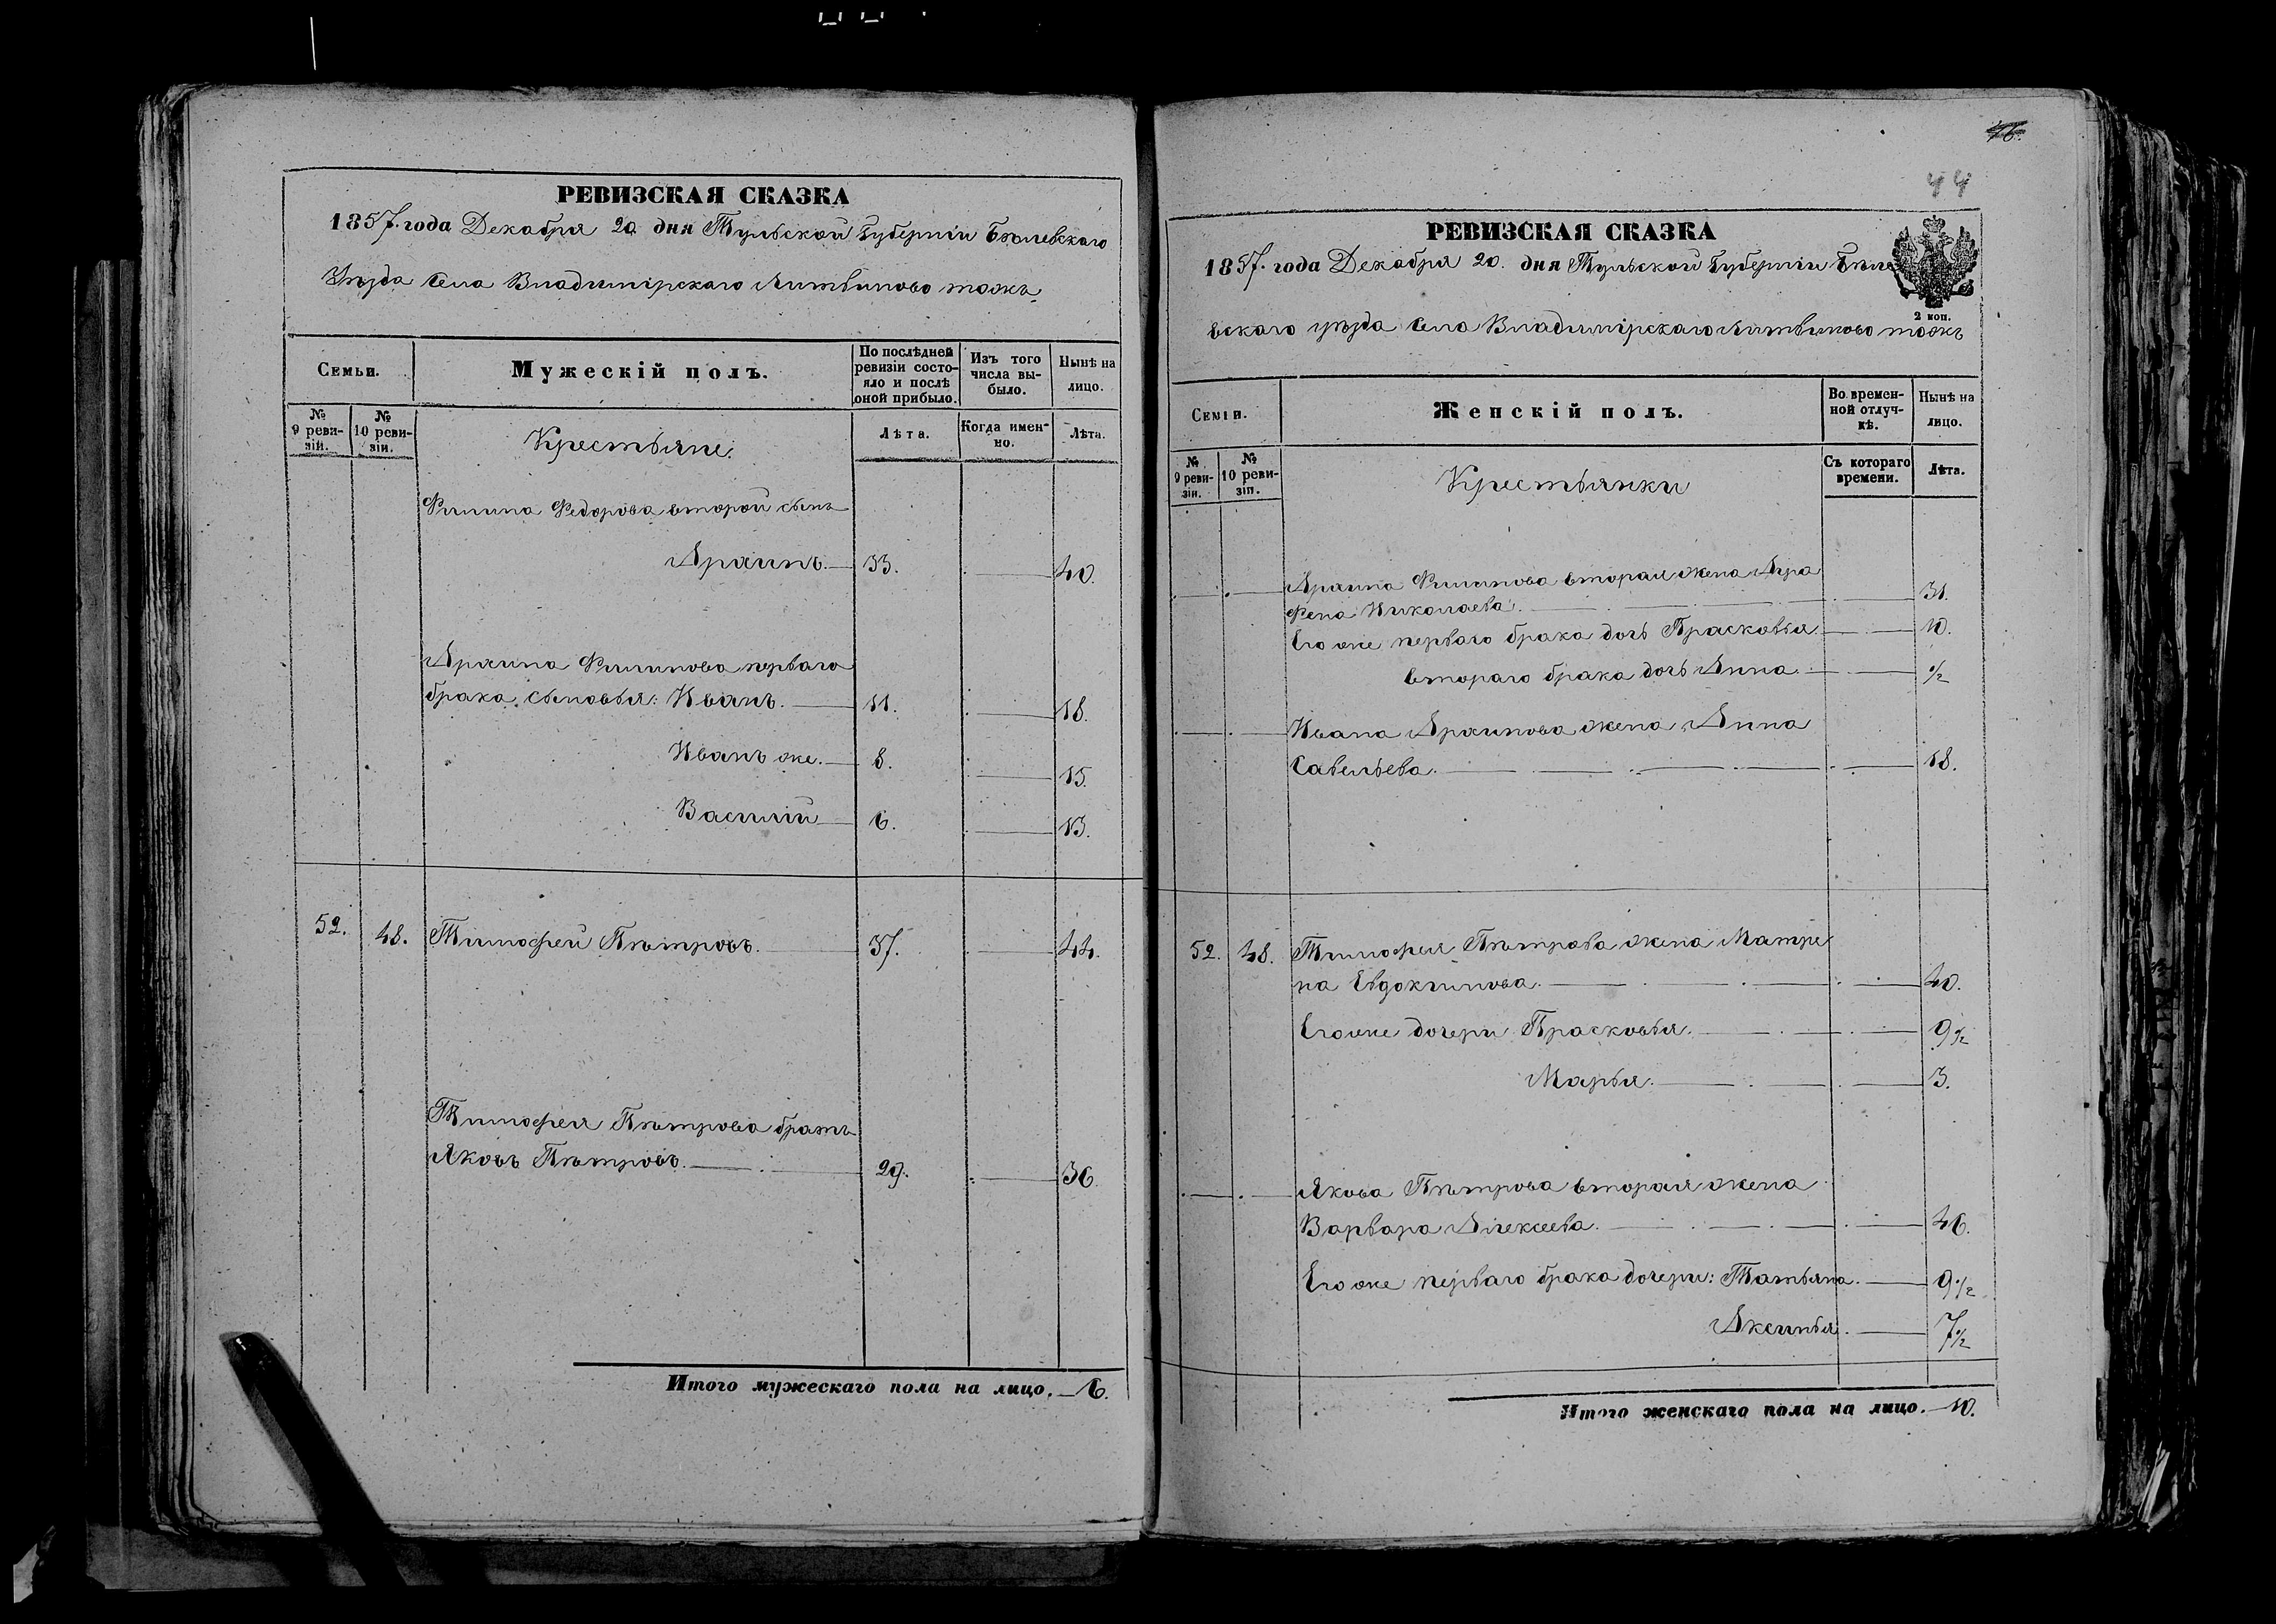 РЕВИЗСКАЯ СКАЗКА
1857. года Декабря 20 дня Тульской Губерніи Бѣлевскаго
Уѣзда Села Владимірскаго Литвиново тожъ
Семьи.
Мужескій полъ.
По послѣдней ревизіи состояло и послѣ оной прибыло.
Изъ того числа выбыло.
Нынѣ на лицо.
№ 9 ревизіи.
№ 10 ревизіи.
Крестьяне.
Лѣта.
Когда именно.
Лѣта.
Филипа Федорова второй сынъ
Архипъ. 33. 40.
Архипа Филипова перваго
брака сыновья: Иванъ. 11. 18.
Иванъ же. 8. 15.
Василій 6. 13.
52. 48. Тимофей Пѣтровъ. 37. 44.
Тимофея Пѣтрова братъ
Яковъ Пѣтровъ. 29. 36.
Итого мужескаго пола на лицо. 6.
44
РЕВИЗСКАЯ СКАЗКА
1857. года Декабря 20. дня Тульской Губерніи Бѣле
вскаго уѣзда Села Владимірскаго Литвиново тожъ
2 коп.
Семьи.
Женскій полъ.
Во временной отлучкѣ.
Нынѣ на лицо.
№ 9 ревизіи.
№ 10 ревизіи.
Крестьянки
Съ котораго времени.
Лѣта.
Архипа Филипова вторая жена Агра
фена Николаева. 31.
Его же перваго брака дочь Прасковья. 10.
втораго брака дочь Анна. 1/2
Ивана Архипова жена Анна
Савельева. 18.
52. 48. Тимофея Пѣтрова жена Матре
на Евдокимова. 40.
Его же дочери Прасковья. 9 1/2
Марья. 3.
Якова Пѣтрова вторая жена
Варвара Алексеева. 46.
Его же перваго брака дочери: Татьяна. 9 1/2
Аксинья. 7 1/2
Итого женскаго пола на лицо. 10.